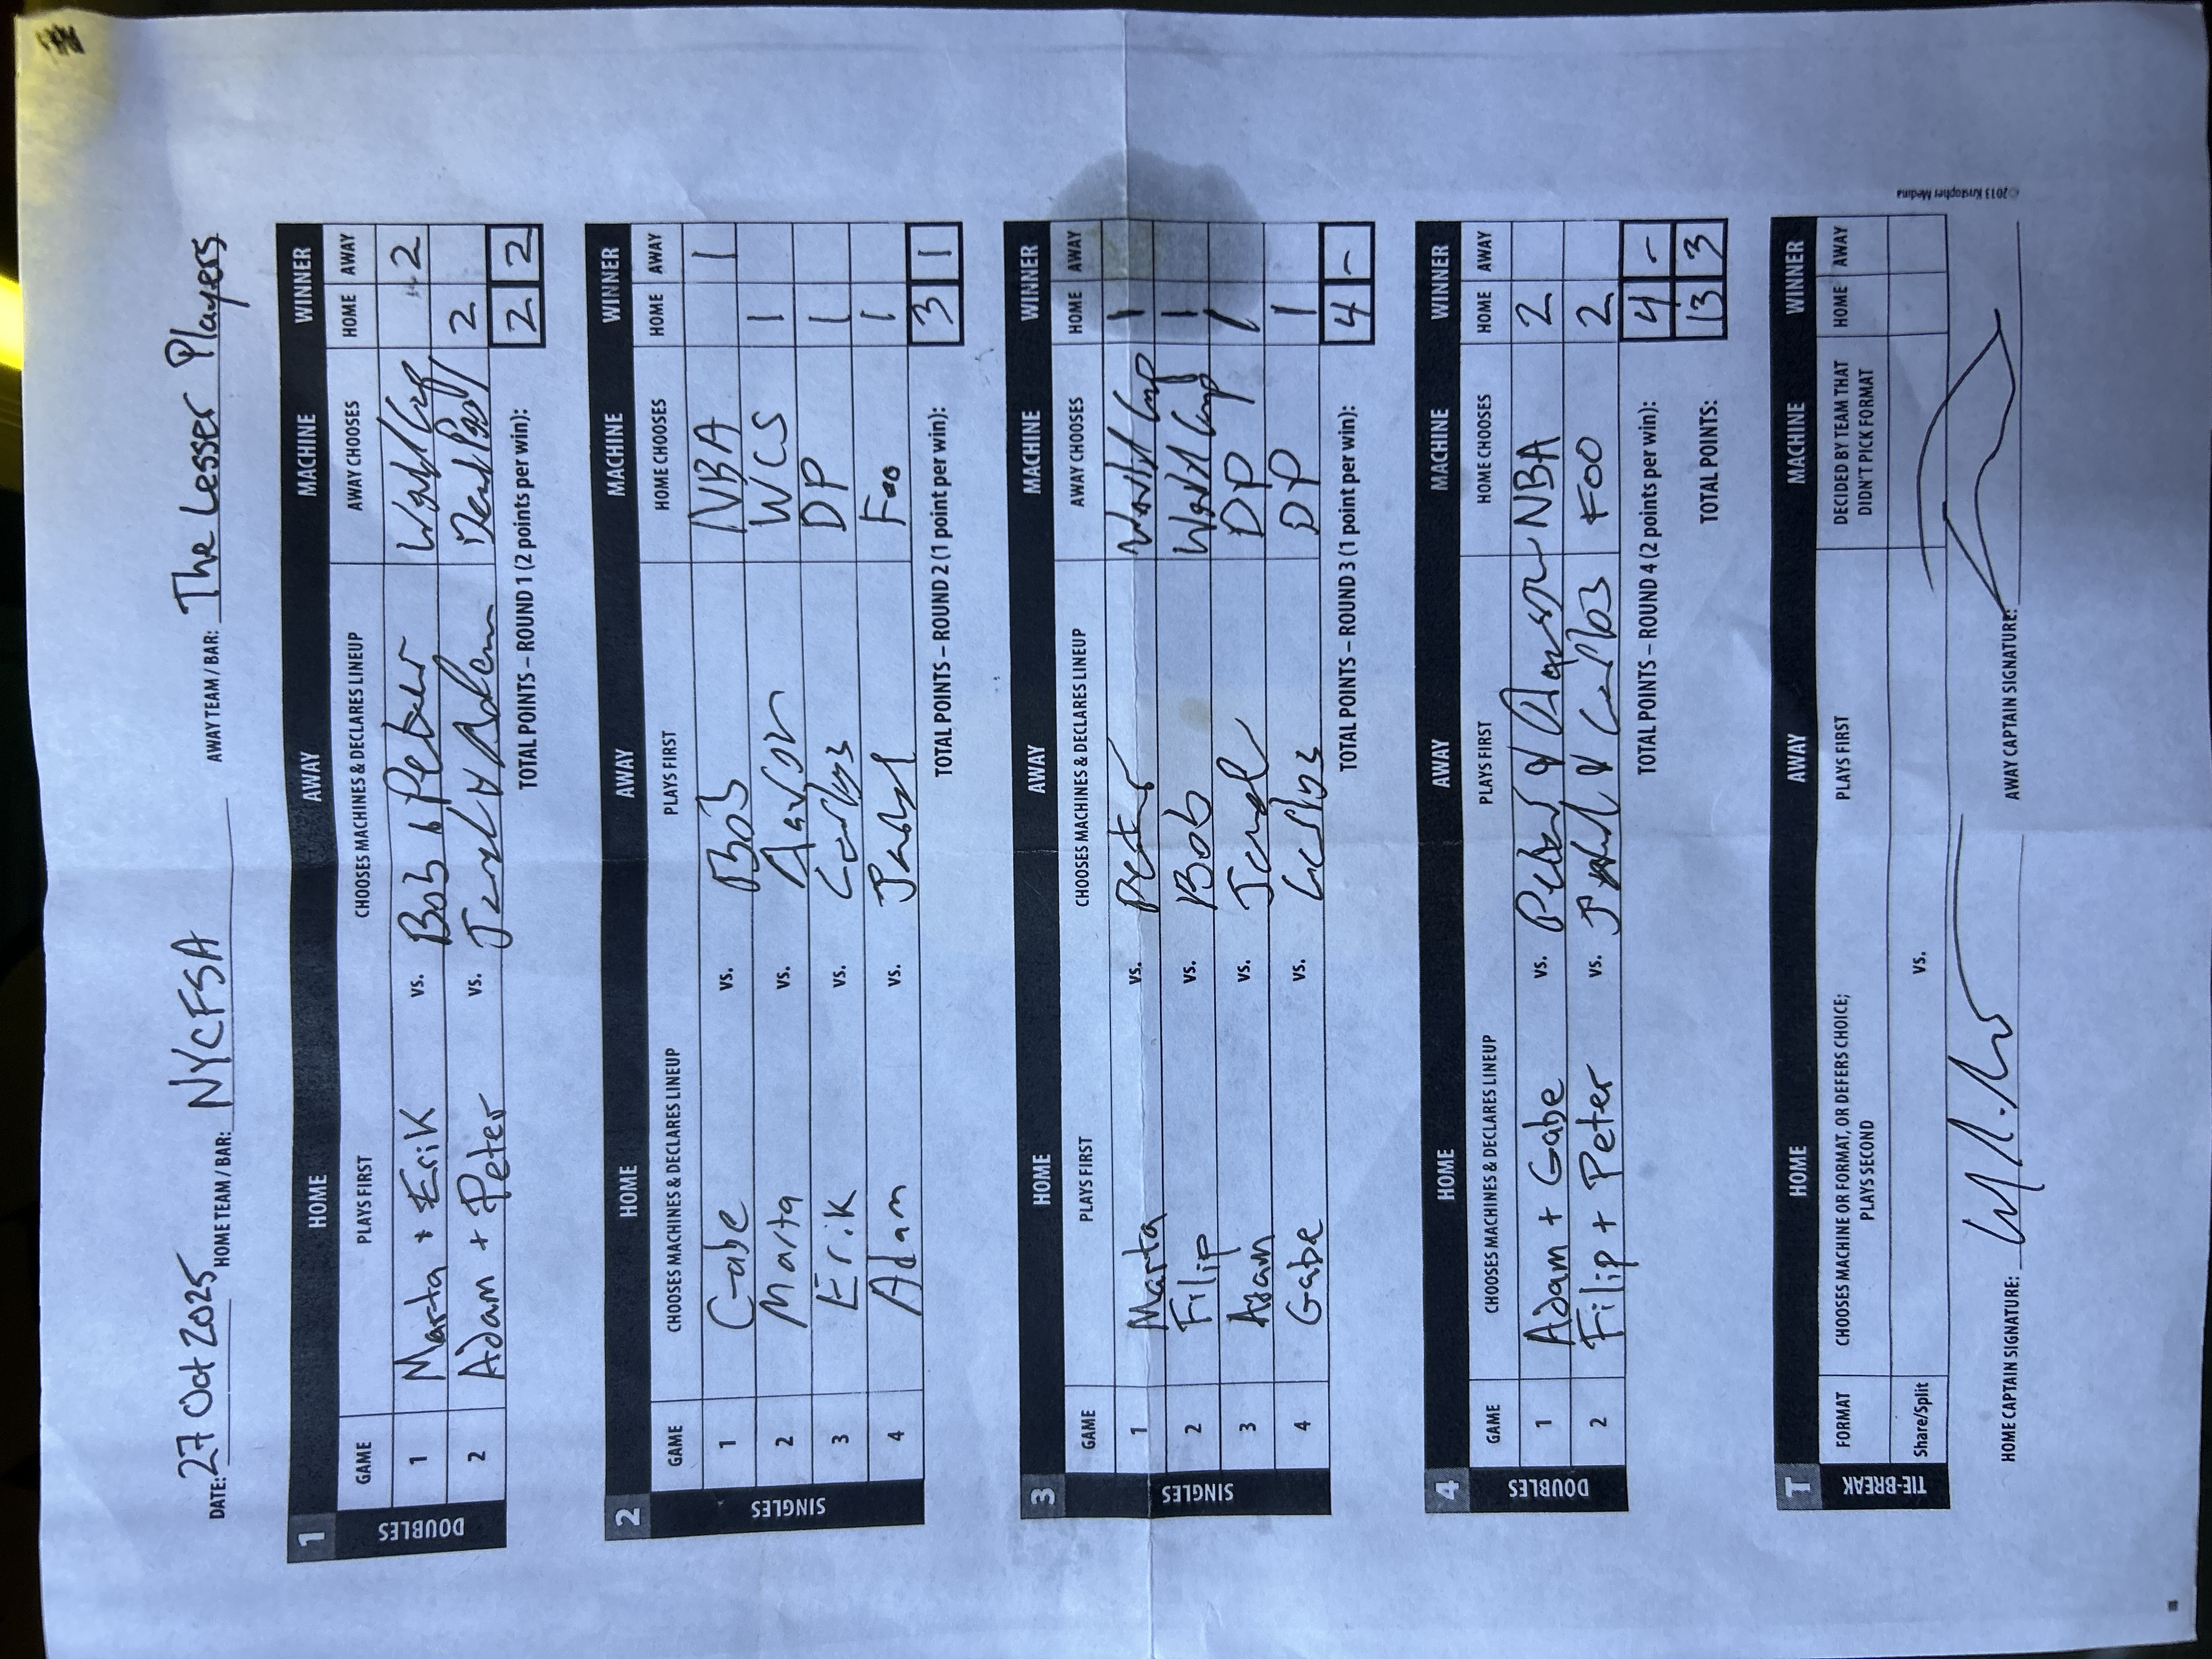 DATE: 27 Oct 2025 HOME TEAM / BAR: NYCFSA AWAY TEAM / BAR: The Lesser Players
1 HOME AWAY MACHINE WINNER
GAME PLAYS FIRST CHOOSES MACHINES & DECLARES LINEUP AWAY CHOOSES HOME AWAY
DOUBLES
1 Marta + Erik vs. Bob & Peter World Cup 2
2 Adam + Peter vs. Jared & Adam Dead Pool 2
TOTAL POINTS – ROUND 1 (2 points per win): 2 2
2 HOME AWAY MACHINE WINNER
GAME CHOOSES MACHINES & DECLARES LINEUP PLAYS FIRST HOME CHOOSES HOME AWAY
SINGLES
1 Gabe vs. Bob NBA 1
2 Marta vs. Aaron WCS 1
3 Erik vs. Carlos DP 1
4 Adam vs. Jared Foo 1
TOTAL POINTS – ROUND 2 (1 point per win): 3 1
3 HOME AWAY MACHINE WINNER
GAME PLAYS FIRST CHOOSES MACHINES & DECLARES LINEUP AWAY CHOOSES HOME AWAY
SINGLES
1 Marta vs. Peter World Cup 1
2 Filip vs. Bob World Cup 1
3 Adam vs. Jared DP 1
4 Gabe vs. Carlos DP 1
TOTAL POINTS – ROUND 3 (1 point per win): 4 -
4 HOME AWAY MACHINE WINNER
GAME CHOOSES MACHINES & DECLARES LINEUP PLAYS FIRST HOME CHOOSES HOME AWAY
DOUBLES
1 Adam + Gabe vs. Peter & Aaron NBA 2
2 Filip + Peter vs. Jared & Carlos FOO 2
TOTAL POINTS – ROUND 4 (2 points per win): 4 -
TOTAL POINTS: 13 3
T HOME AWAY MACHINE WINNER
TIE-BREAK
FORMAT CHOOSES MACHINE OR FORMAT, OR DEFERS CHOICE; PLAYS SECOND PLAYS FIRST DECIDED BY TEAM THAT DIDN'T PICK FORMAT HOME AWAY
Share/Split vs.
HOME CAPTAIN SIGNATURE: AWAY CAPTAIN SIGNATURE:
© 2013 Kristopher Medina